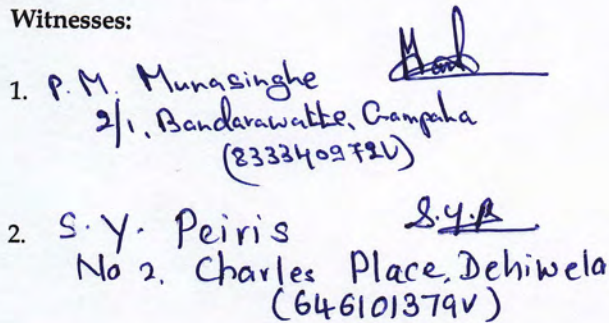 Witnesses:
1. P. M. Munasinghe
2/1, Bandarawatte, Gampaha
(833340972V)
2. S. Y. Peiris S.Y.P
No 2, Charles Place, Dehiwela
(646101379V)